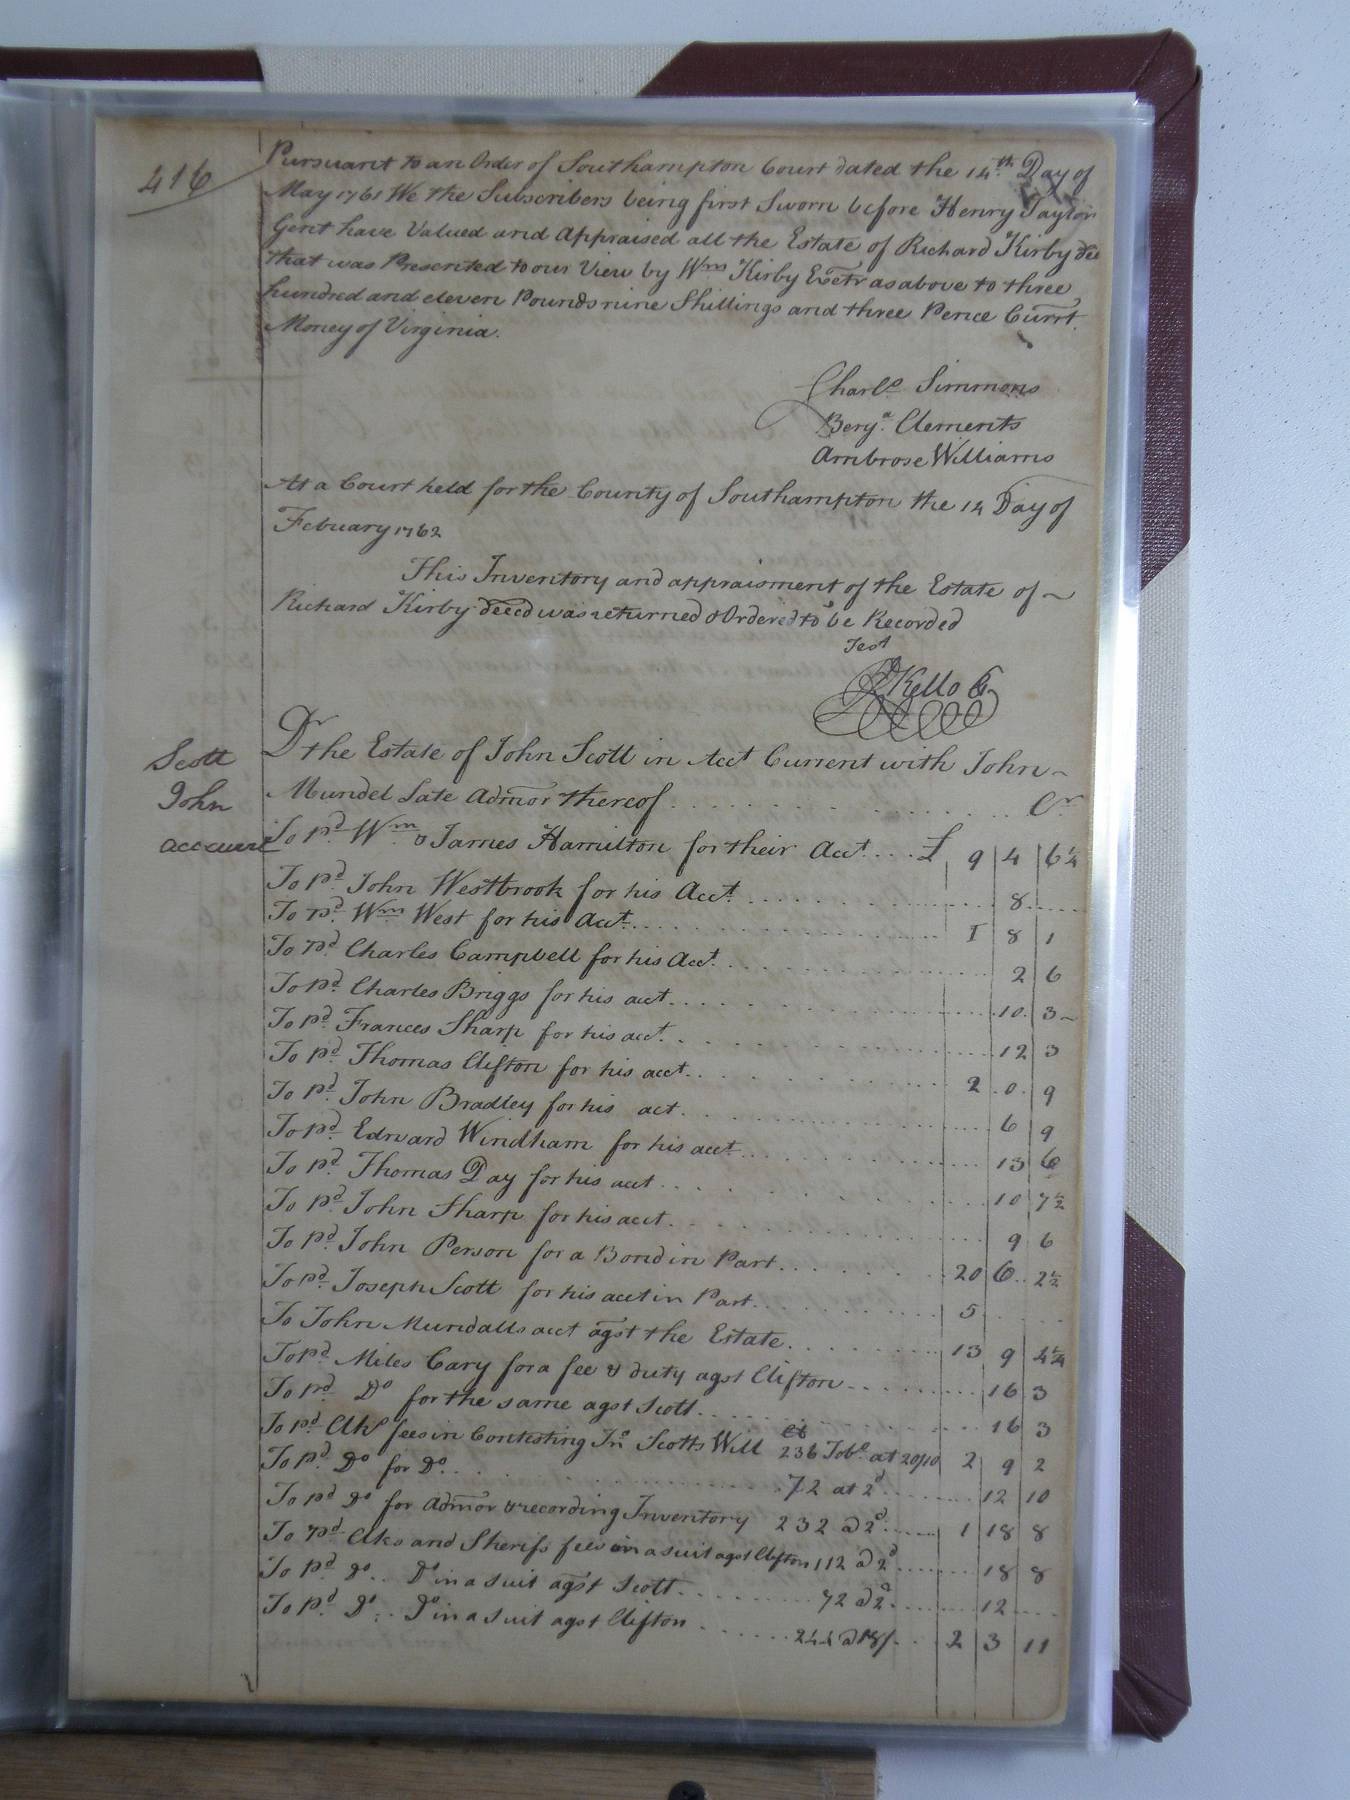 416
Pursuant to an Order of Southampton Court dated the 14th Day of
May 1761 We the Subscribers being first Sworn before Henry Taylor
Gent have Valued and Appraised all the Estate of Richard Kirby dec
that was Presented to our View by Wm Kirby Exetr as above to three
hundred and eleven Pounds nine Shillings and three Pence Currt
Money of Virginia.
Charls Simmons
Benja. Clements
Ambrose Williams
At a Court held for the County of Southampton the 14 Day of
Febuary 1762
This Inventory and appraisment of the Estate of
Richard Kirby decd was returned & Ordered to be Recorded
Test
R Kello C
Scott
John
account
Dr the Estate of John Scott in Acct Current with John
Mundel Late Admor thereof . . . Cr
To pd Wm & James Hamilton for their Acct . . . £ 9 4 6¼
To pd John Westbrook for his Acct . . . 8
To pd Wm West for his Acct . . . 1 8 1
To pd Charles Campbell for his Acct . . . 2 6
To pd Charles Briggs for his acct . . . 10 3
To pd Frances Sharp for his acct . . . 12 3
To pd Thomas Clifton for his acct . . . 2 0 9
To pd John Bradley for his act . . . 6 9
To pd Edward Windham for his acct . . . 13 6
To pd Thomas Day for his acct . . . 10 7½
To pd John Sharp for his acct . . . 9 6
To pd John Person for a Bond in Part . . . 20 6 2½
To pd Joseph Scott for his acct in Part . . . 5
To John Mundalls acct agst the Estate . . . 13 9 4¼
To pd Miles Cary for a fee & duty agst Clifton . . . 16 3
To pd Do for the same agst Scott . . . 16 3
To pd Clks fees in Contesting Jno Scotts Will 236 Tobo at 20/10 2 9 2
To pd Do for Do . . . 72 at 2d . . . 12 10
To pd Do for Admor & recording Inventory 232 @ 2d . . . 1 18 8
To pd Clks and Sherifs fees in a suit agst Clifton 112 @ 2d . . . 18 8
To pd Do . . Do in a Suit agst Scott . . . 72 @ 2d . . . 12
To pd Do . . Do in a Suit agst Clifton . . . 244 @ 18/ . . . 2 3 11